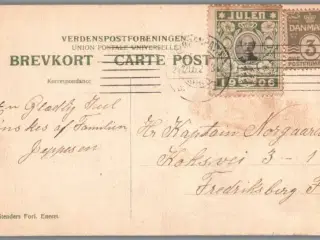 VERDENSPOSTFORENINGEN
UNION POSTALE UNIVERSELLE
BREVKORT - CARTE POST
Korrespondance
JULEN
1906
DANMARK
3
En Glædlig Jul
ønskes af Familien
Jeppesen
Hr Kaptain Norgaard
Koksvei 3 - 1
Fredriksberg
Forl. Eneret.